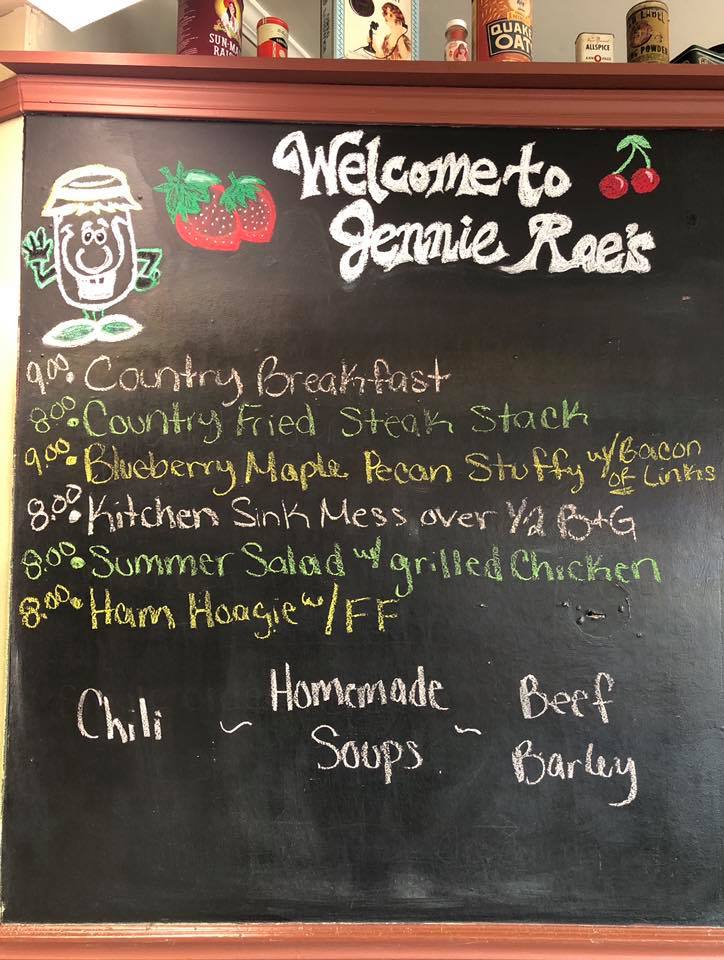 SUN-MA
RAI
QUAKE
OAT
ALLSPICE
Welcome to
Jennie Rae's
9.00. Country Breakfast
8.00. Country Fried Steak Stack
9.00. Blueberry Maple Pecan Stuffy w/Bacon
or Links
8.00. Kitchen Sink Mess over 1/2 B+G
8.00. Summer Salad w/ grilled Chicken
8.00. Ham Hoagie w/FF
Chili ~ Homemade Soups ~ Beef Barley